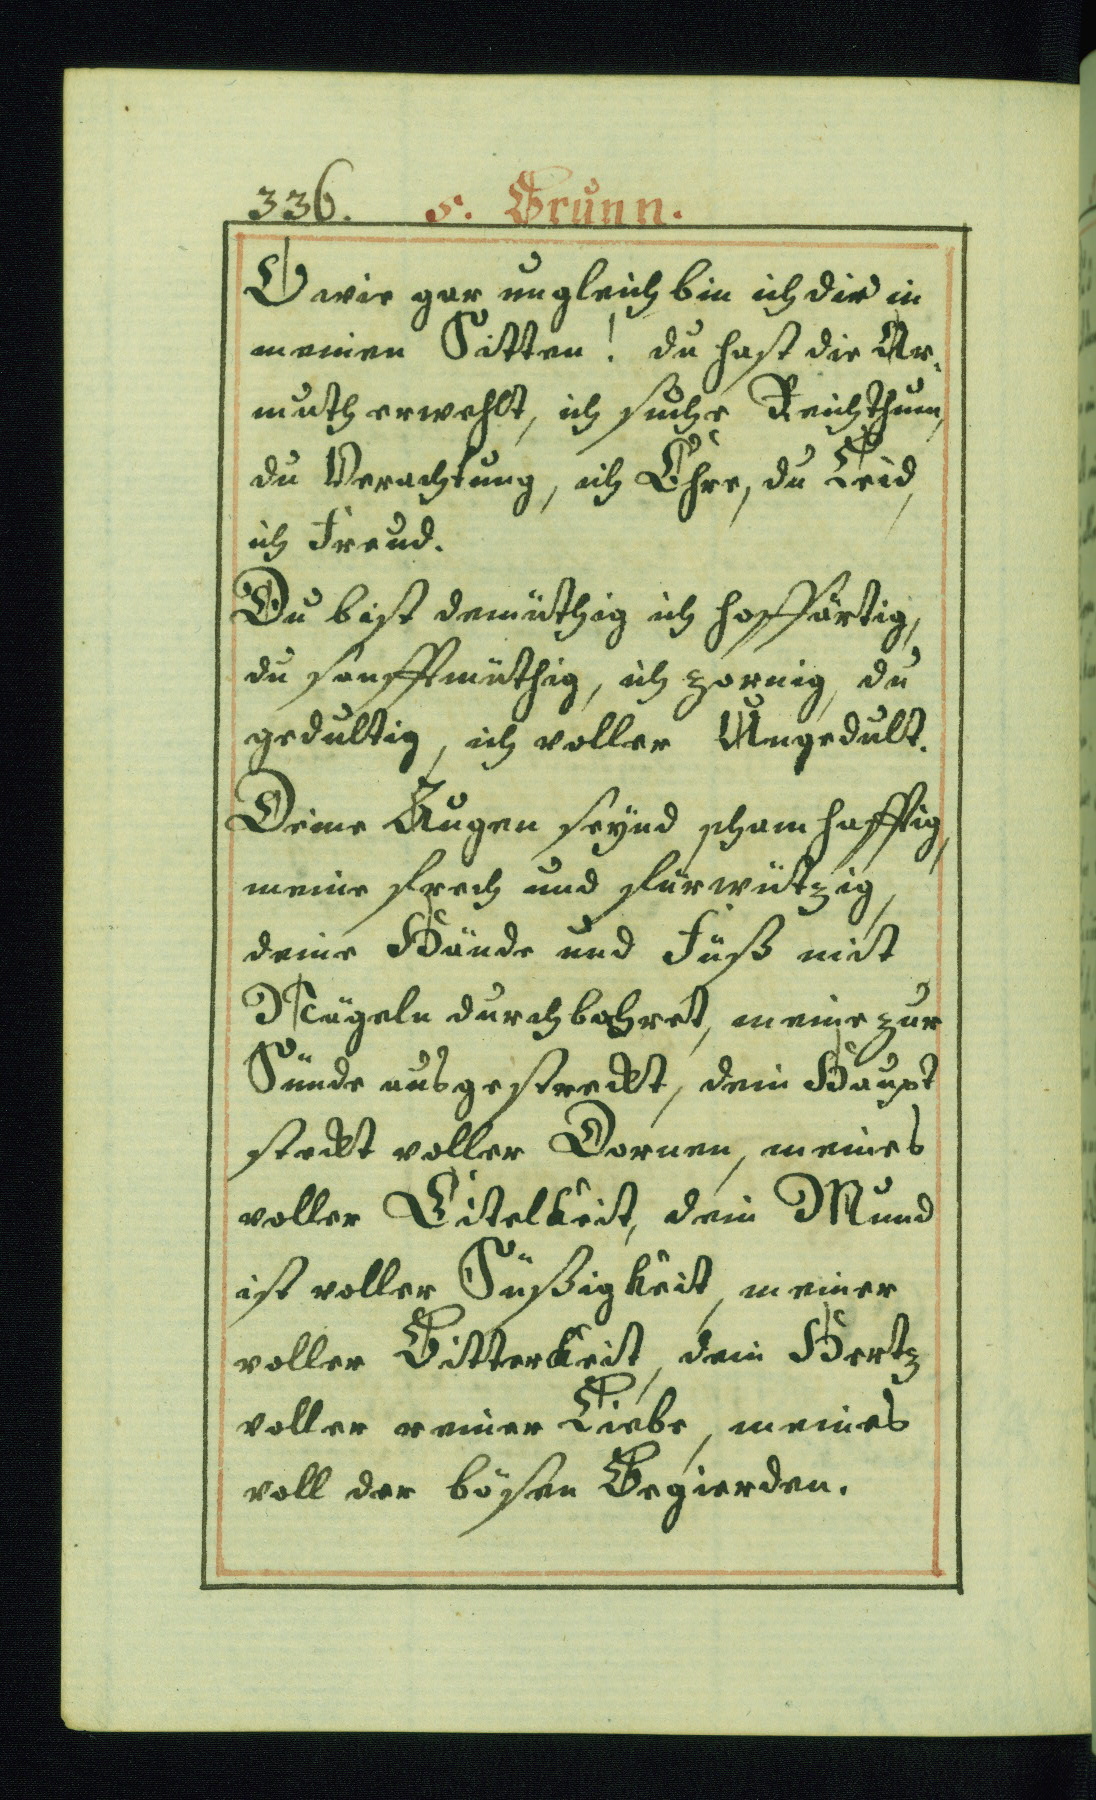 336. 5. Brunn.
O wie gar ungleich bin ich dir in
meinen Sitten! du hast die Ar-
muth erwehlt, ich suche Reichthum,
du Verachtung, ich Ehre, du Leid,
ich Freud.
Du bist demüthig ich hoffärtig,
du sanfftmüthig, ich zornig, du
gedultig, ich voller Ungedult.
Deine Augen seÿnd schamhafftig,
meine frech und fürwützig,
deine Hände und Füß mit
Nägeln durchbohret, meine zur
Sünde ausgestreckt, dein Haupt
steckt voller Dornen, meines
voller Eitelkeit, dein Mund
ist voller Süßigkeit, meiner
voller Bitterkeit, dein Hertz
voller reiner Liebe, meines
voll der bösen Begierden.